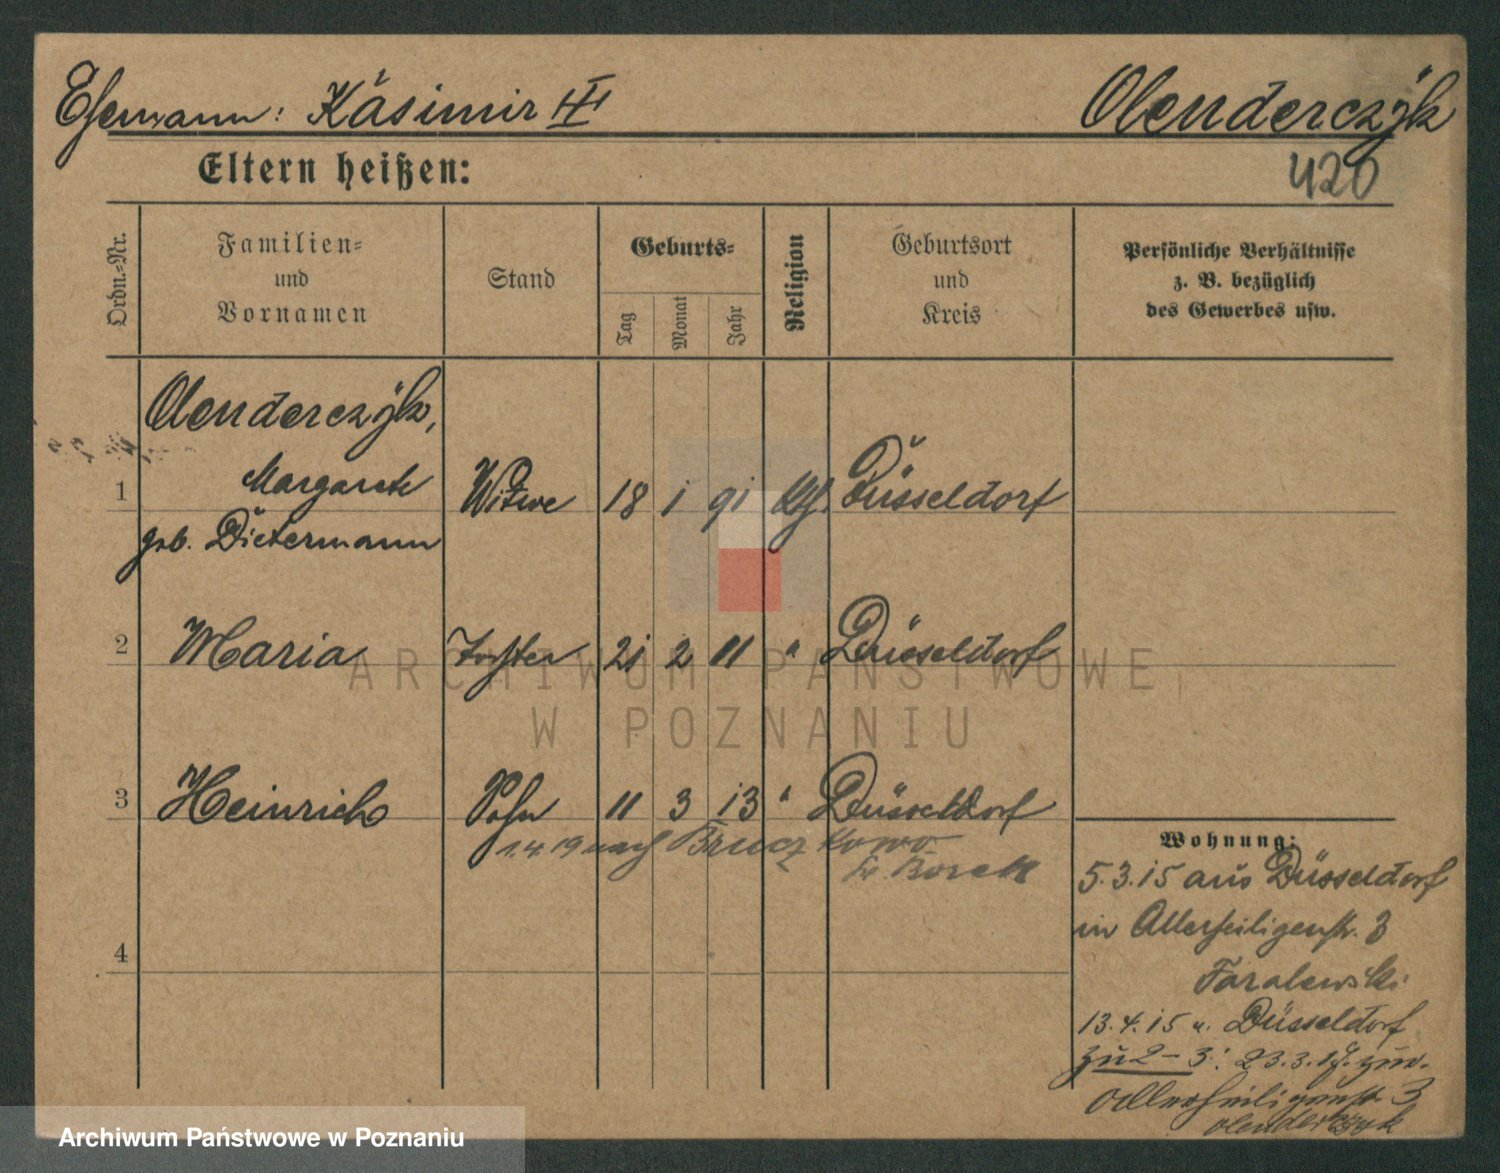 Ehemann: Käsimir III Olenderczÿk
Eltern heißen: 420
Ordn.-Nr.
Familien-
und
Vornamen
Stand
Geburts-
Tag
Monat
Jahr
Religion
Geburtsort
und
Kreis
Persönliche Verhältnisse
z. B. bezüglich
des Gewerbes usw.
Olenderczÿk,
1 Margarete Witwe 18 1 91 kth. Düsseldorf
geb. Dietermann
2 Maria Tochter 21 2 11 " Düsseldorf
3 Heinrich Sohn 11 3 13 " Düsseldorf
1.4.19 nach Bruczkowo
Kr. Borek
4
Wohnung:
5.3.15 aus Düsseldorf
in Allerheiligenstr. 3
13.4.15 n. Düsseldorf
zu 2-3: 23.3. zur.
Allerheiligenstr. 3
Olenderczyk
ARCHIWUM PAŃSTWOWE
W POZNANIU
Archiwum Państwowe w Poznaniu